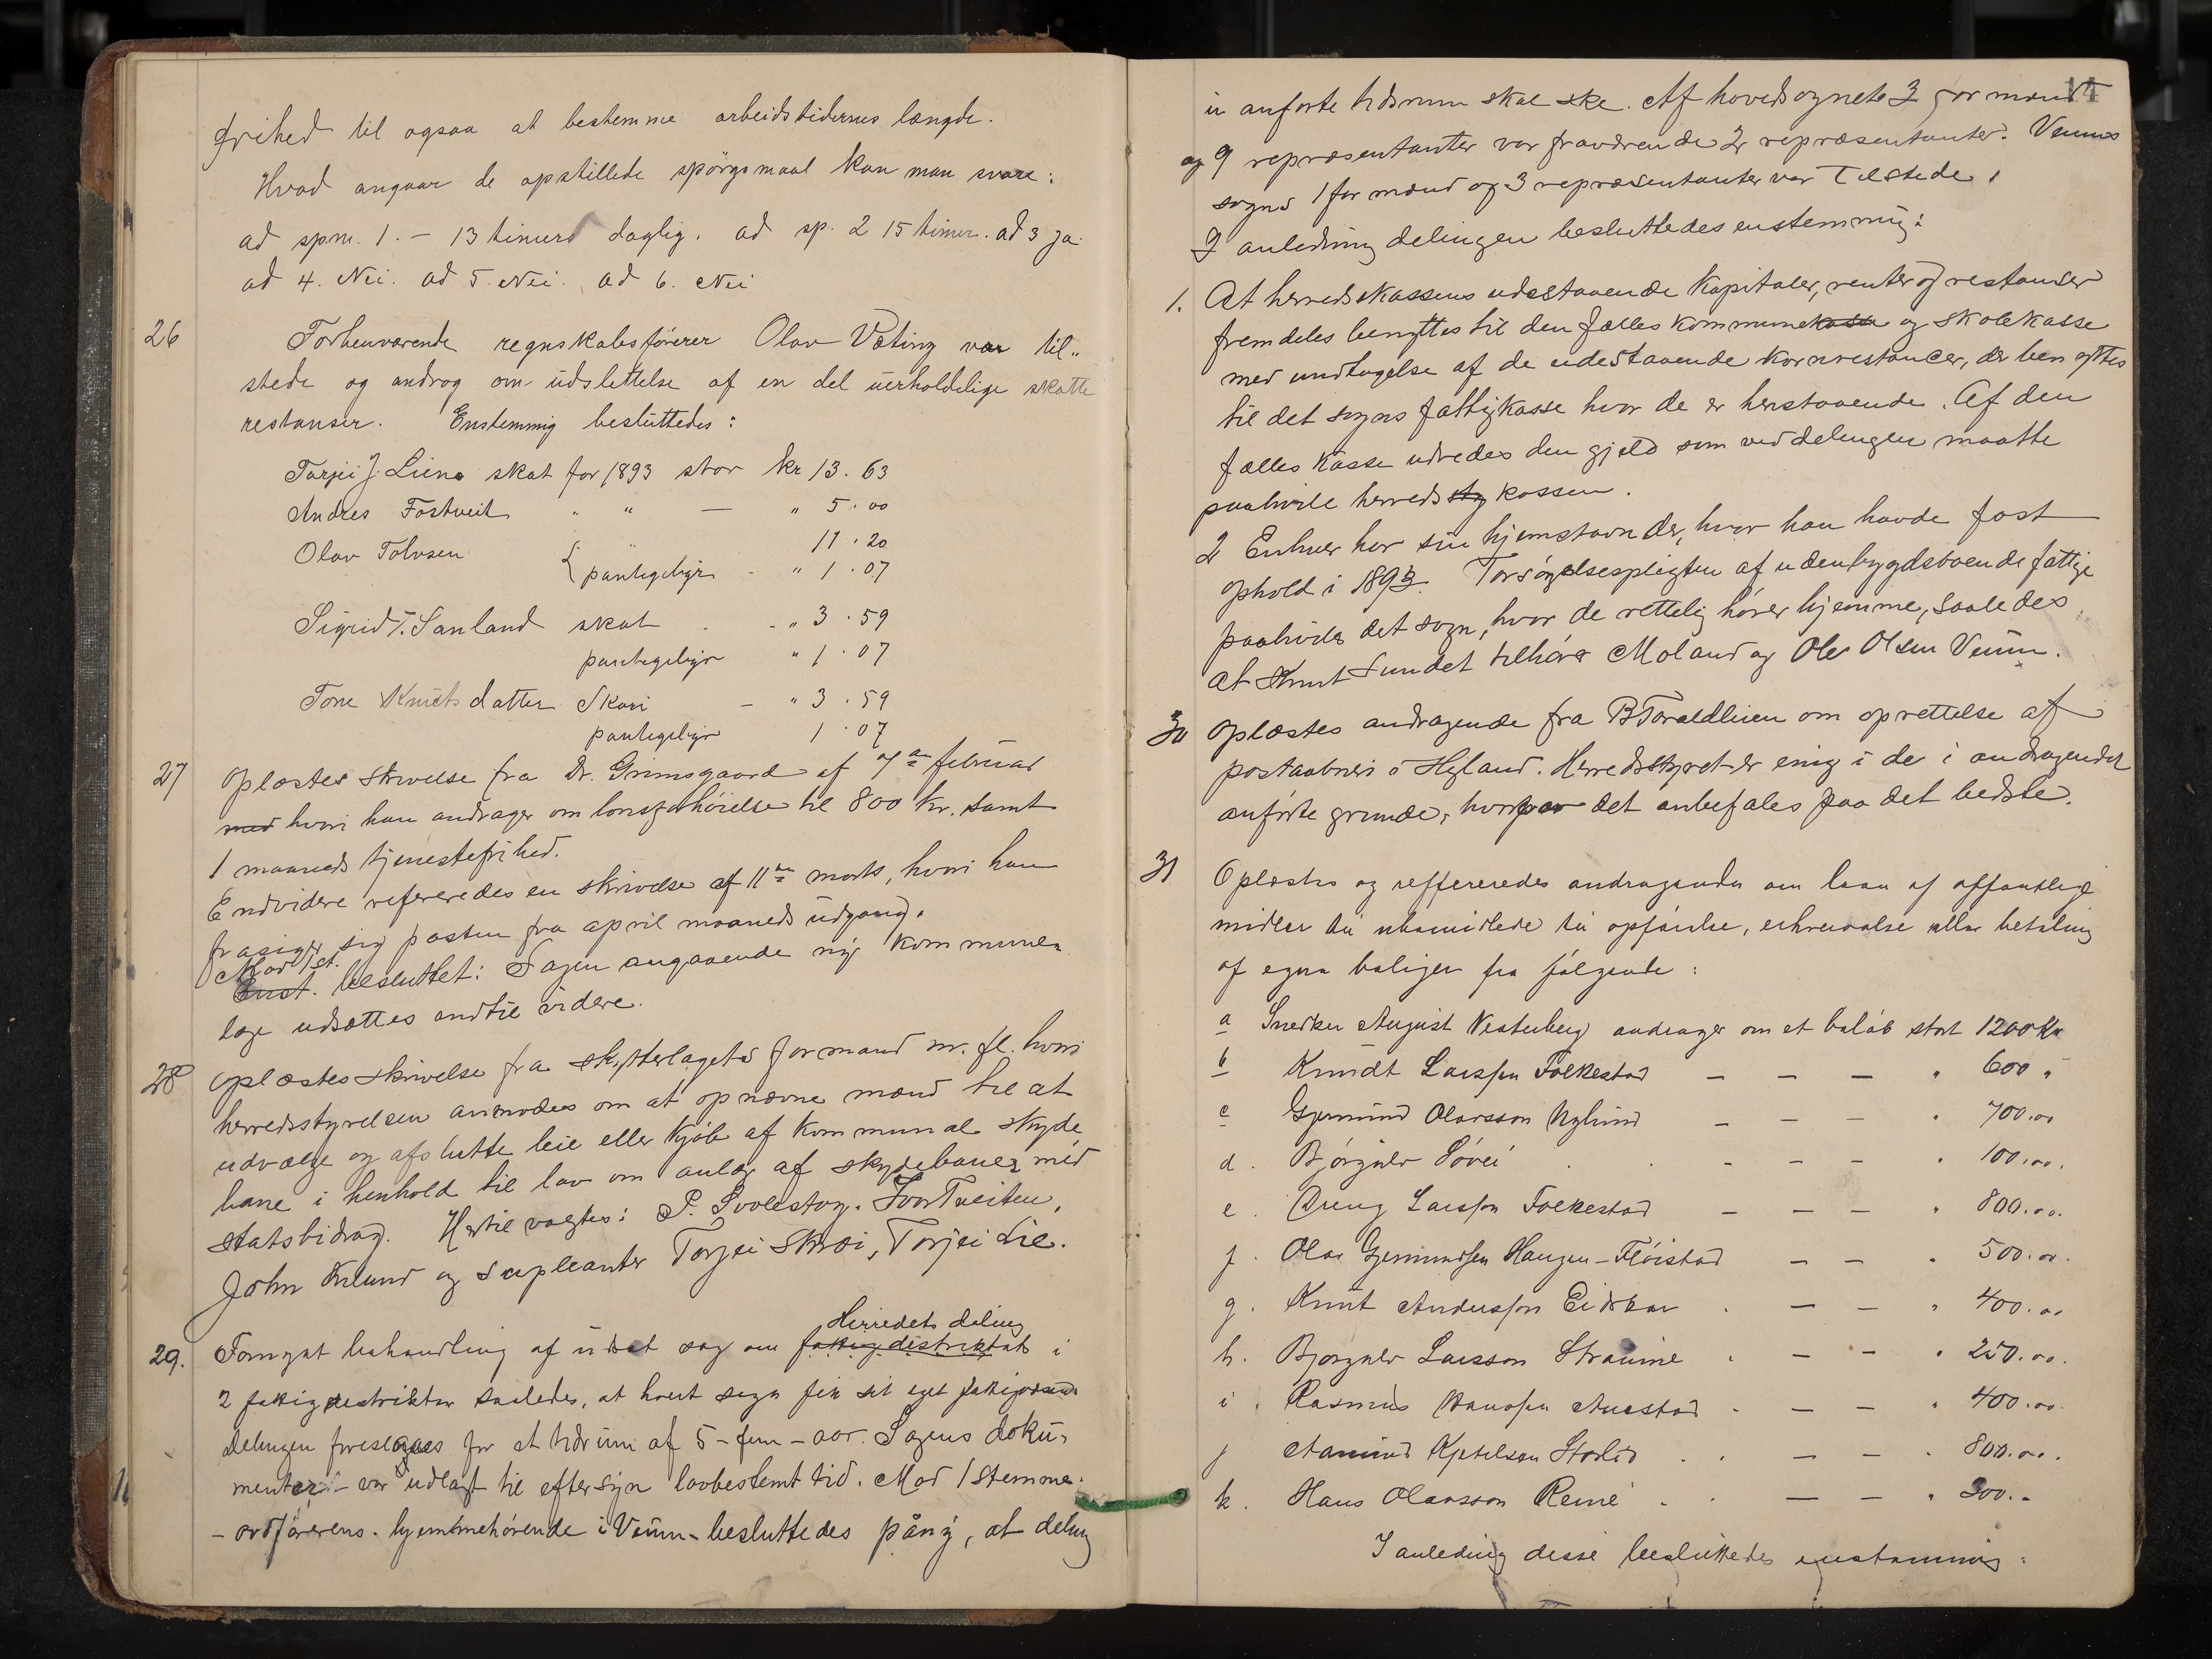 frihed til ogsaa at bestemme arbeidstidernes længde.
Hvad angaar de opstillede spörgsmaal kan man svare:
ad spm. 1. – 13 timers daglig. ad sp. 2 15 timer. ad 3 ja.
ad 4. Nei. ad 5. Nei. ad 6. Nei
26 Forhenværende regnskabsförerer Olav Væting var til„
stede og androg om udslettelse af en del uerholdelige skatte
restanser. Enstemmig besluttedes:
Torjei J. Liene skat for 1893 stor kr 13.63
Andres Fostveit „ „ — „ 5.00
Olav Tolvsen „ 11.20
pantegebyr - „ 1.07
Sigrid T. Sanland skat - „ 3.59
pantegebyr „ 1.07
Tone Knutsdatter Skori – „ 3.59
pantegebyr 1.07
27 Oplæstes skrivelse fra Dr. Grimsgaard af 7de februar
med hvori han andrager om lönsforhöielse til 800 kr. samt
1 maaneds tjenestefrihed.
Endvidere refereredes en skrivelse af 11te marts, hvori han
frasiger sig posten fra april maaneds udgang.
Mod 1 st.
Enst. besluttet: Sagen angaaende ny kommune„
læge udsættes indtil videre.
28 Oplæstes skrivelse fra skytterlagets formand m. fl. hvori
herredsstyrelsen anmodes om at opnævne mænd til at
udvælge og afslutte leie eller kjöb af kommunal skyde
bane i henhold til lov om anlæg af skydebaner med
statsbidrag. Hertil valgtes: P. Svolestog. Ivar Tveiten,
John Kulund og supleanter Torjei Skræi, Torjei Lie.
Herredets deling
29. Fornyet behandling af udsat sag om fattigdistriktets i
2 fattigdestrikter saaledes, at hvert sogn fik sit eget fattigvæsen
Delingen foreslaaes for et tidsrum af 5 – fem – aar. Sagens doku„
menter – var udlagt til eftersyn lovbestemt tid. Mod 1 stemme.
– ordförerens. hjemmehörende i Veum – besluttedes påny, at deling
14
in anførte tidsrum skal ske. Af hovedsognets 3 formænd
og 9 repræsentanter var fraværende 2 repræsentanter. Veums
sogns 1 formænd og 3 repræsentanter var tilstede.
I anledning delingen besluttedes enstemmig:
1. At herredskassens udestaaende kapitaler, renter og restanser
fremdeles benyttes til den fælles kommunekasse og skolekasse
med undtagelse af de udestaaende kornrestancer, der benyttes
til det sogns fattigkasse hvor de er henstaaende. Af den
fælles kasse udredes den gjeld som ved delingen maatte
paahvile herredssty kassen.
2 Enhver har sin hjemstavn der, hvor han havde fast
ophold i 1893. Forsörgelsespligten af udenbygdsboende fattige
paahviler det sogn, hvor de rettelig hörer hjemme, saaledes
at Knut Sundet tilhörer Moland og Ole Olsen Veum.
30 Oplæstes andragende fra B Toraldlien om oprettelse af
postaabneri i Hyland. Herredsstyret er enig i de i andragendet
anförte grunde, hvorpaa det anbefales paa det bedste.
31 Oplæstes og reffereredes andragender om laan af offentlige
midler til ubemidlede til opförelse, erhvervelse eller betaling
af egne boliger fra fölgende:
a Snedker August Vesterberg andrager om et belöb stort 1200 Kr
b Knudt Larssen Folkestad – – – „ 600 „
c Gjermund Olavsson Nylund – – – „ 700.00
d. Björgulv Lövei . . – – – „ 100.00.
e. Dreng Larssen Folkestad – – – „ 800.00.
f. Olav Gjermundsen Haugen – Flöistad – – „ 500.00.
g. Knut Anderssen Eidskar . – – „ 400.00
h. Björgulv Larsson Straume . – – „ 250.00.
i. Rasmus Hanssen Aurstad . – – „ 400.00.
j Aamund Kjetilsson Storlid . . – – „ 800.00.
k. Hans Olavsson Reine . . – – „ 300.-
I anledning disse besluttedes enstemmig: